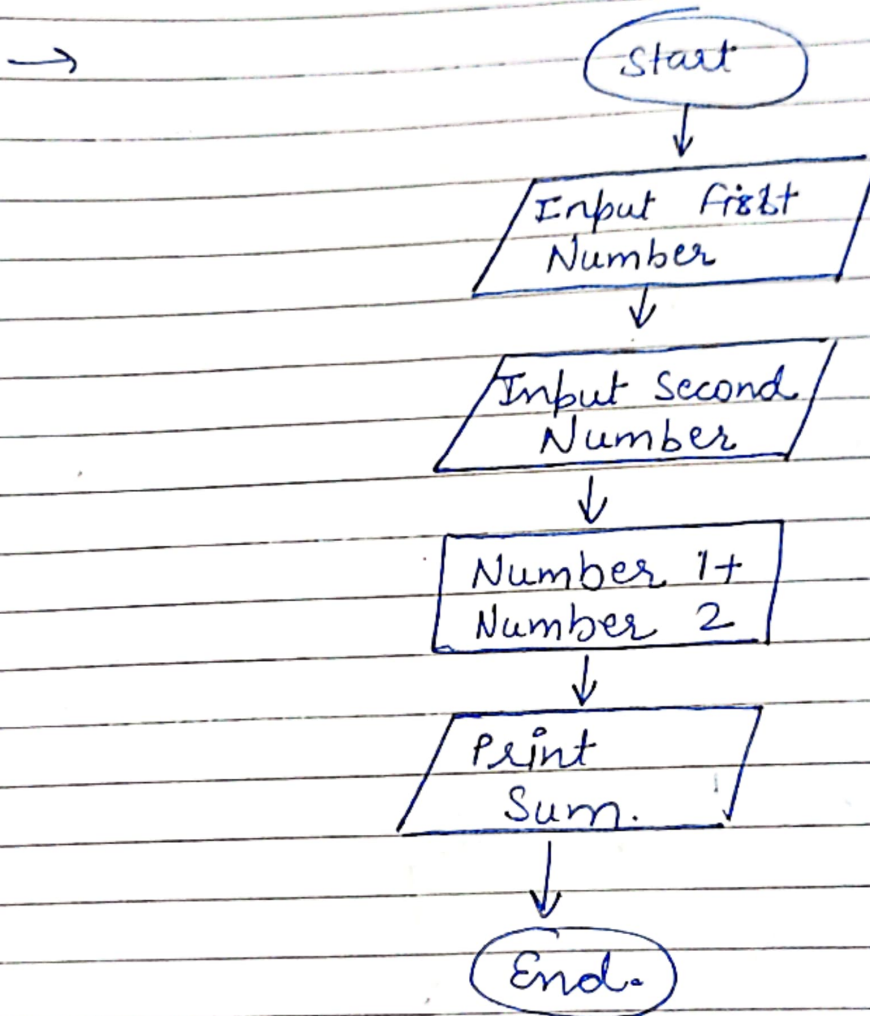 Start
Input First
Number
Input Second
Number
Number 1+
Number 2
Print
Sum.
End.